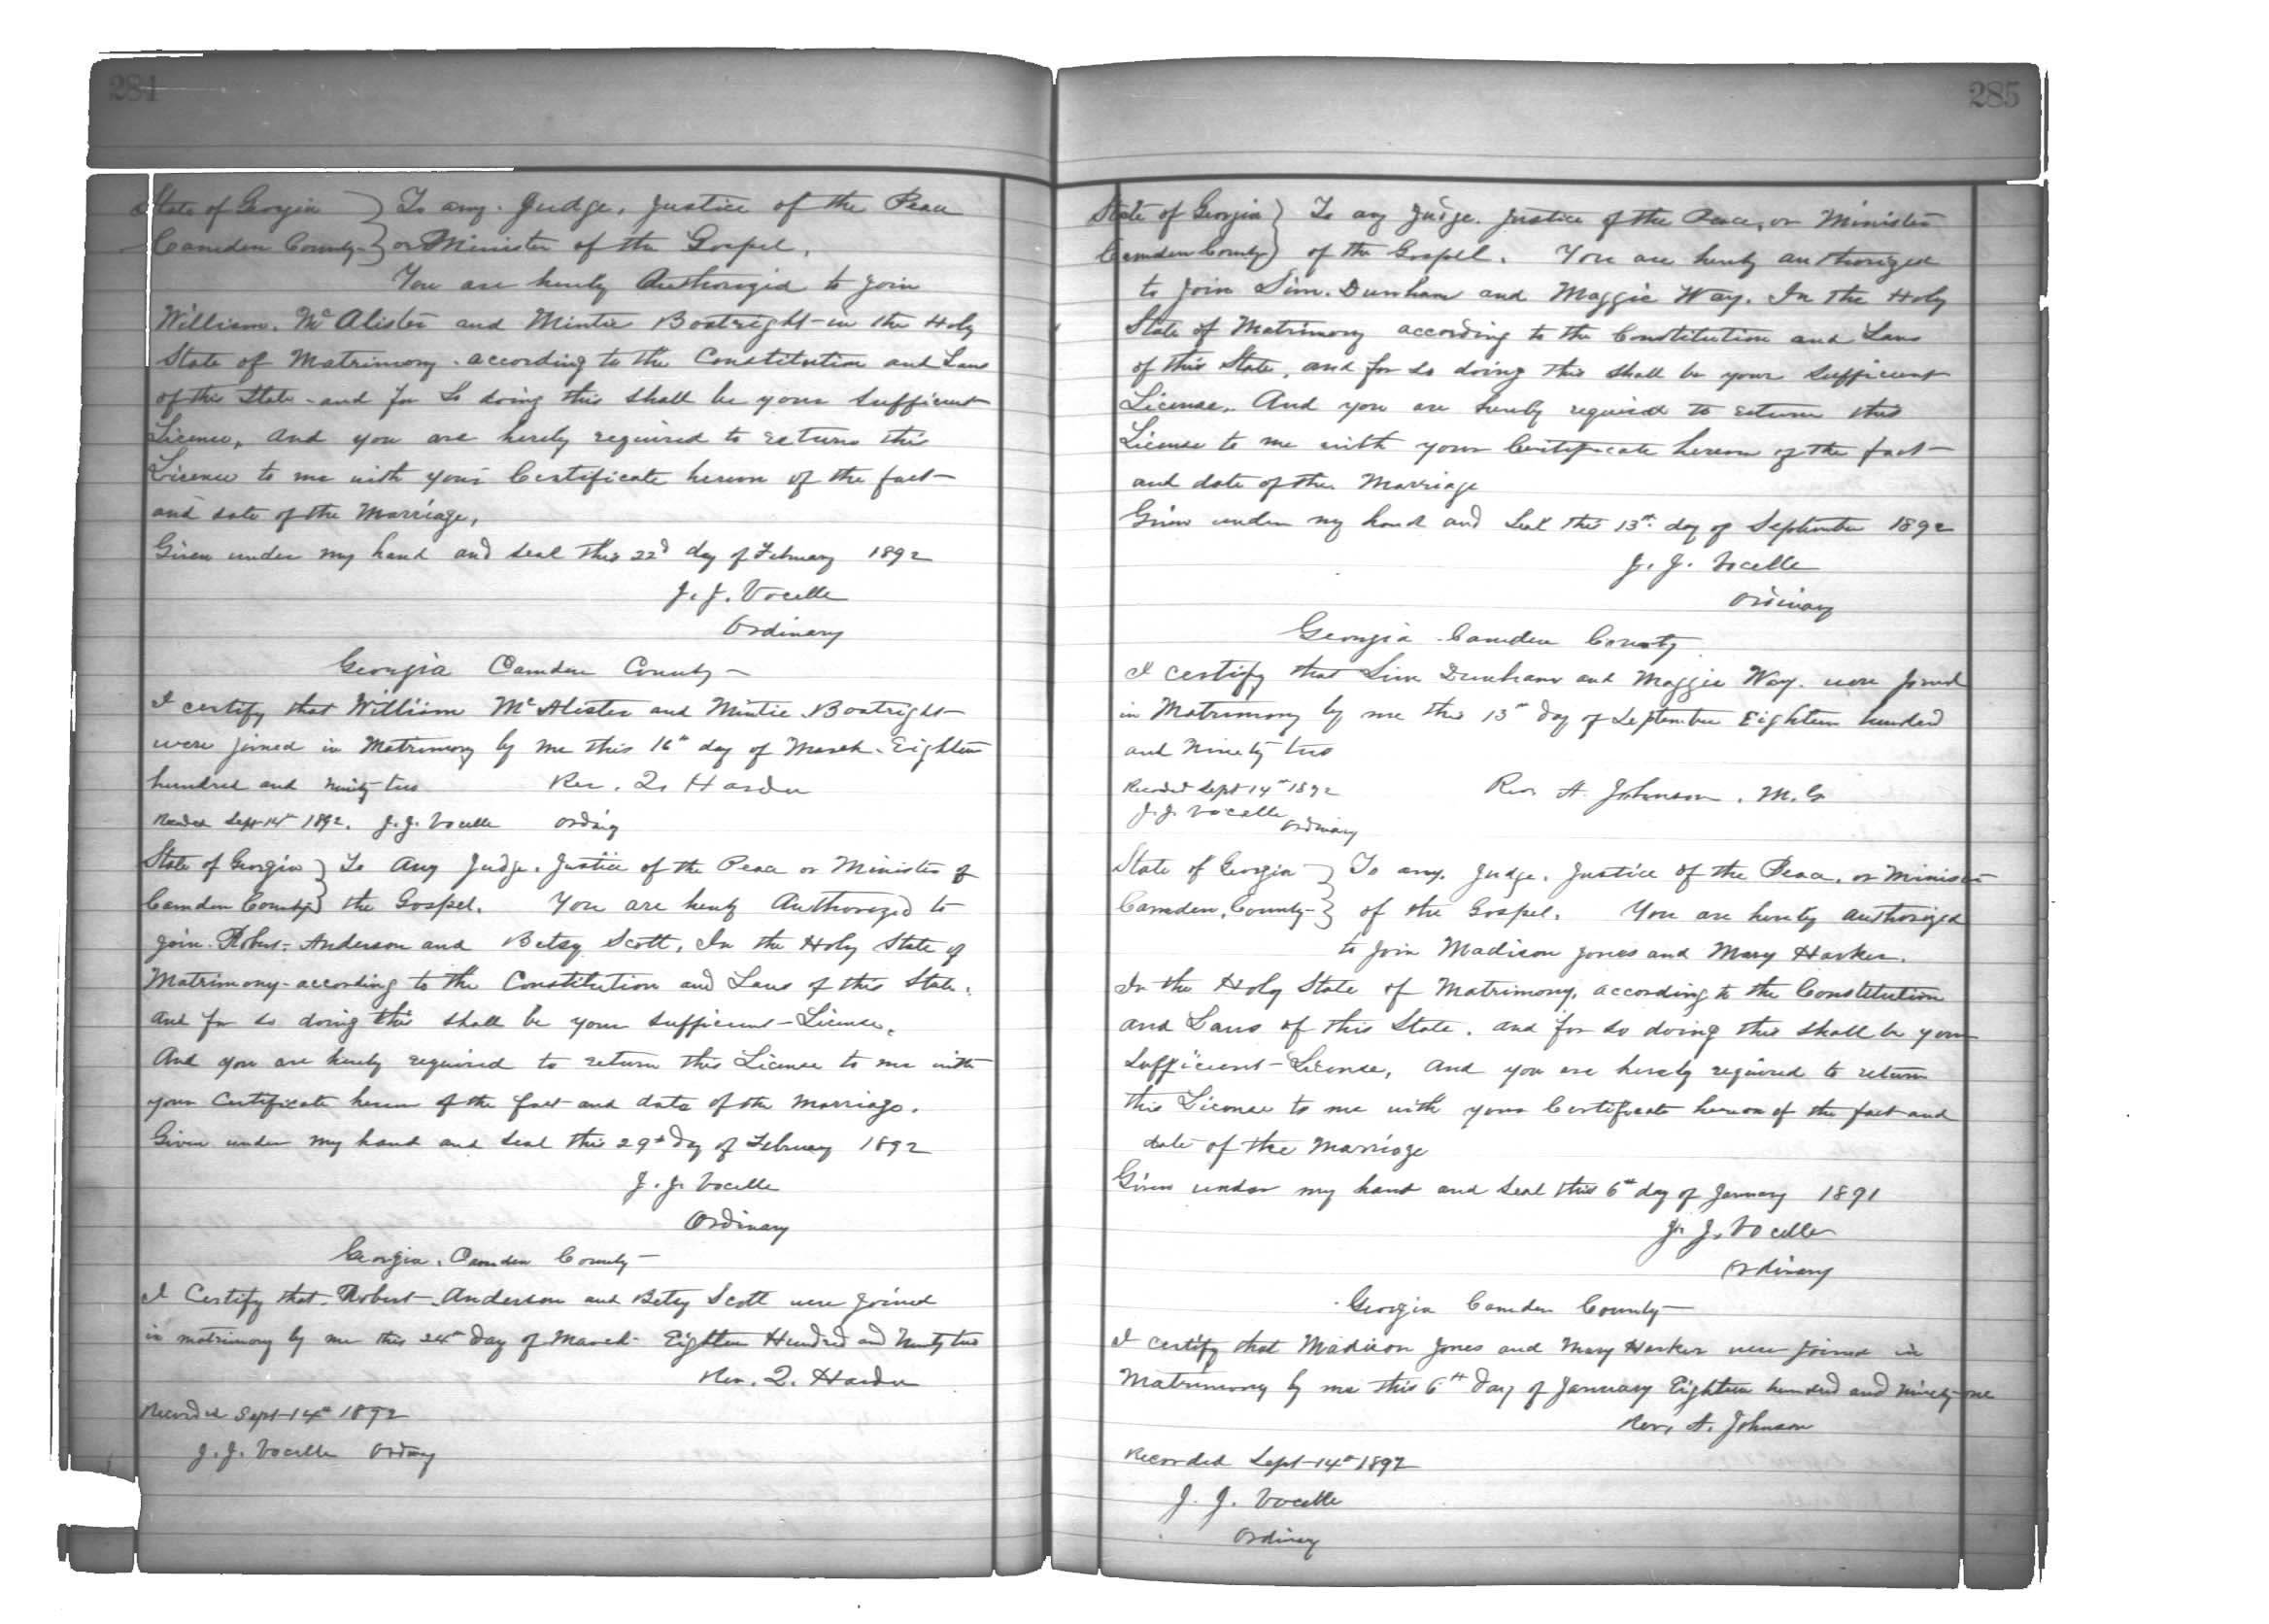 284
State of Georgia } To any Judge, Justice of the Peace
Camden County } or Minister of the Gospel.
You are hereby Authorized to join
William McAlister and Mintie Boatright in the Holy
State of Matrimony according to the Constitution and Laws
of this State and for So doing this shall be your Sufficient
License, And you are hereby required to return this
License to me with your Certificate hereon of the fact
and date of the Marriage,
Given under my hand and seal this 22d day of February 1892
J. J. Vocelle
Ordinary
Georgia Camden County
I certify that William McAlister and Mintie Boatright
were joined in Matrimony by me this 16th day of March Eighteen
hundred and ninety two Rev. Q.
Recorded Sept 14th 1892. J. J. Vocelle Ordinary
State of Georgia } To Any Judge, Justice of the Peace or Minister of
Camden County } the Gospel. You are hereby Authorized to
join Robert Anderson and Betsy Scott, In the Holy State of
Matrimony according to the Constitution and Laws of this State,
and for so doing this shall be your sufficient License,
And you are hereby required to return this License to me with
your Certificate hereon of the fact and date of the Marriage.
Given under my hand and seal this 29th day of February 1892
J. J. Vocelle
Ordinary
Georgia, Camden County
I Certify that Robert Anderson and Betsy Scott were joined
in matrimony by me this 24th day of March Eighteen Hundred and Ninety two
Rev. Q.
Recorded Sept 14th 1892
J. J. Vocelle Ordinary
285
State of Georgia } To any Judge, Justice of the Peace, or Minister
Camden County } of the Gospel. You are hereby authorized
to join Sim. Dunham and Maggie Way. In the Holy
State of Matrimony according to the Constitution and Laws
of this State, and for so doing this shall be your sufficient
License, And you are hereby required to return this
License to me with your Certificate hereon of the fact
and date of the Marriage
Given under my hand and Seal this 13th day of September 1892
J. J. Vocelle
Ordinary
Georgia Camden County
I certify that Sim Dunham and Maggie Way were joined
in Matrimony by me this 13th day of September Eighteen hundred
and Ninety two
Recorded Sept 14th 1892 Rev A. Johnson, M. G
J. J. Vocelle
Ordinary
State of Georgia } To any Judge, Justice of the Peace, or Minister
Camden County } of the Gospel. You are hereby authorized
to join Madison Jones and Mary Harker.
In the Holy State of Matrimony, according to the Constitution
and Laws of this State, and for so doing this shall be your
sufficient License, And you are hereby required to return
this License to me with your Certificate hereon of the fact and
date of the Marriage
Given under my hand and seal this 6th day of January 1891
J. J. Vocelle
Ordinary
Georgia Camden County
I certify that Madison Jones and Mary Harker were joined in
Matrimony by me this 6th day of January Eighteen hundred and ninety-one
Rev, A. Johnson
Recorded Sept 14th 1892
J. J. Vocelle
Ordinary